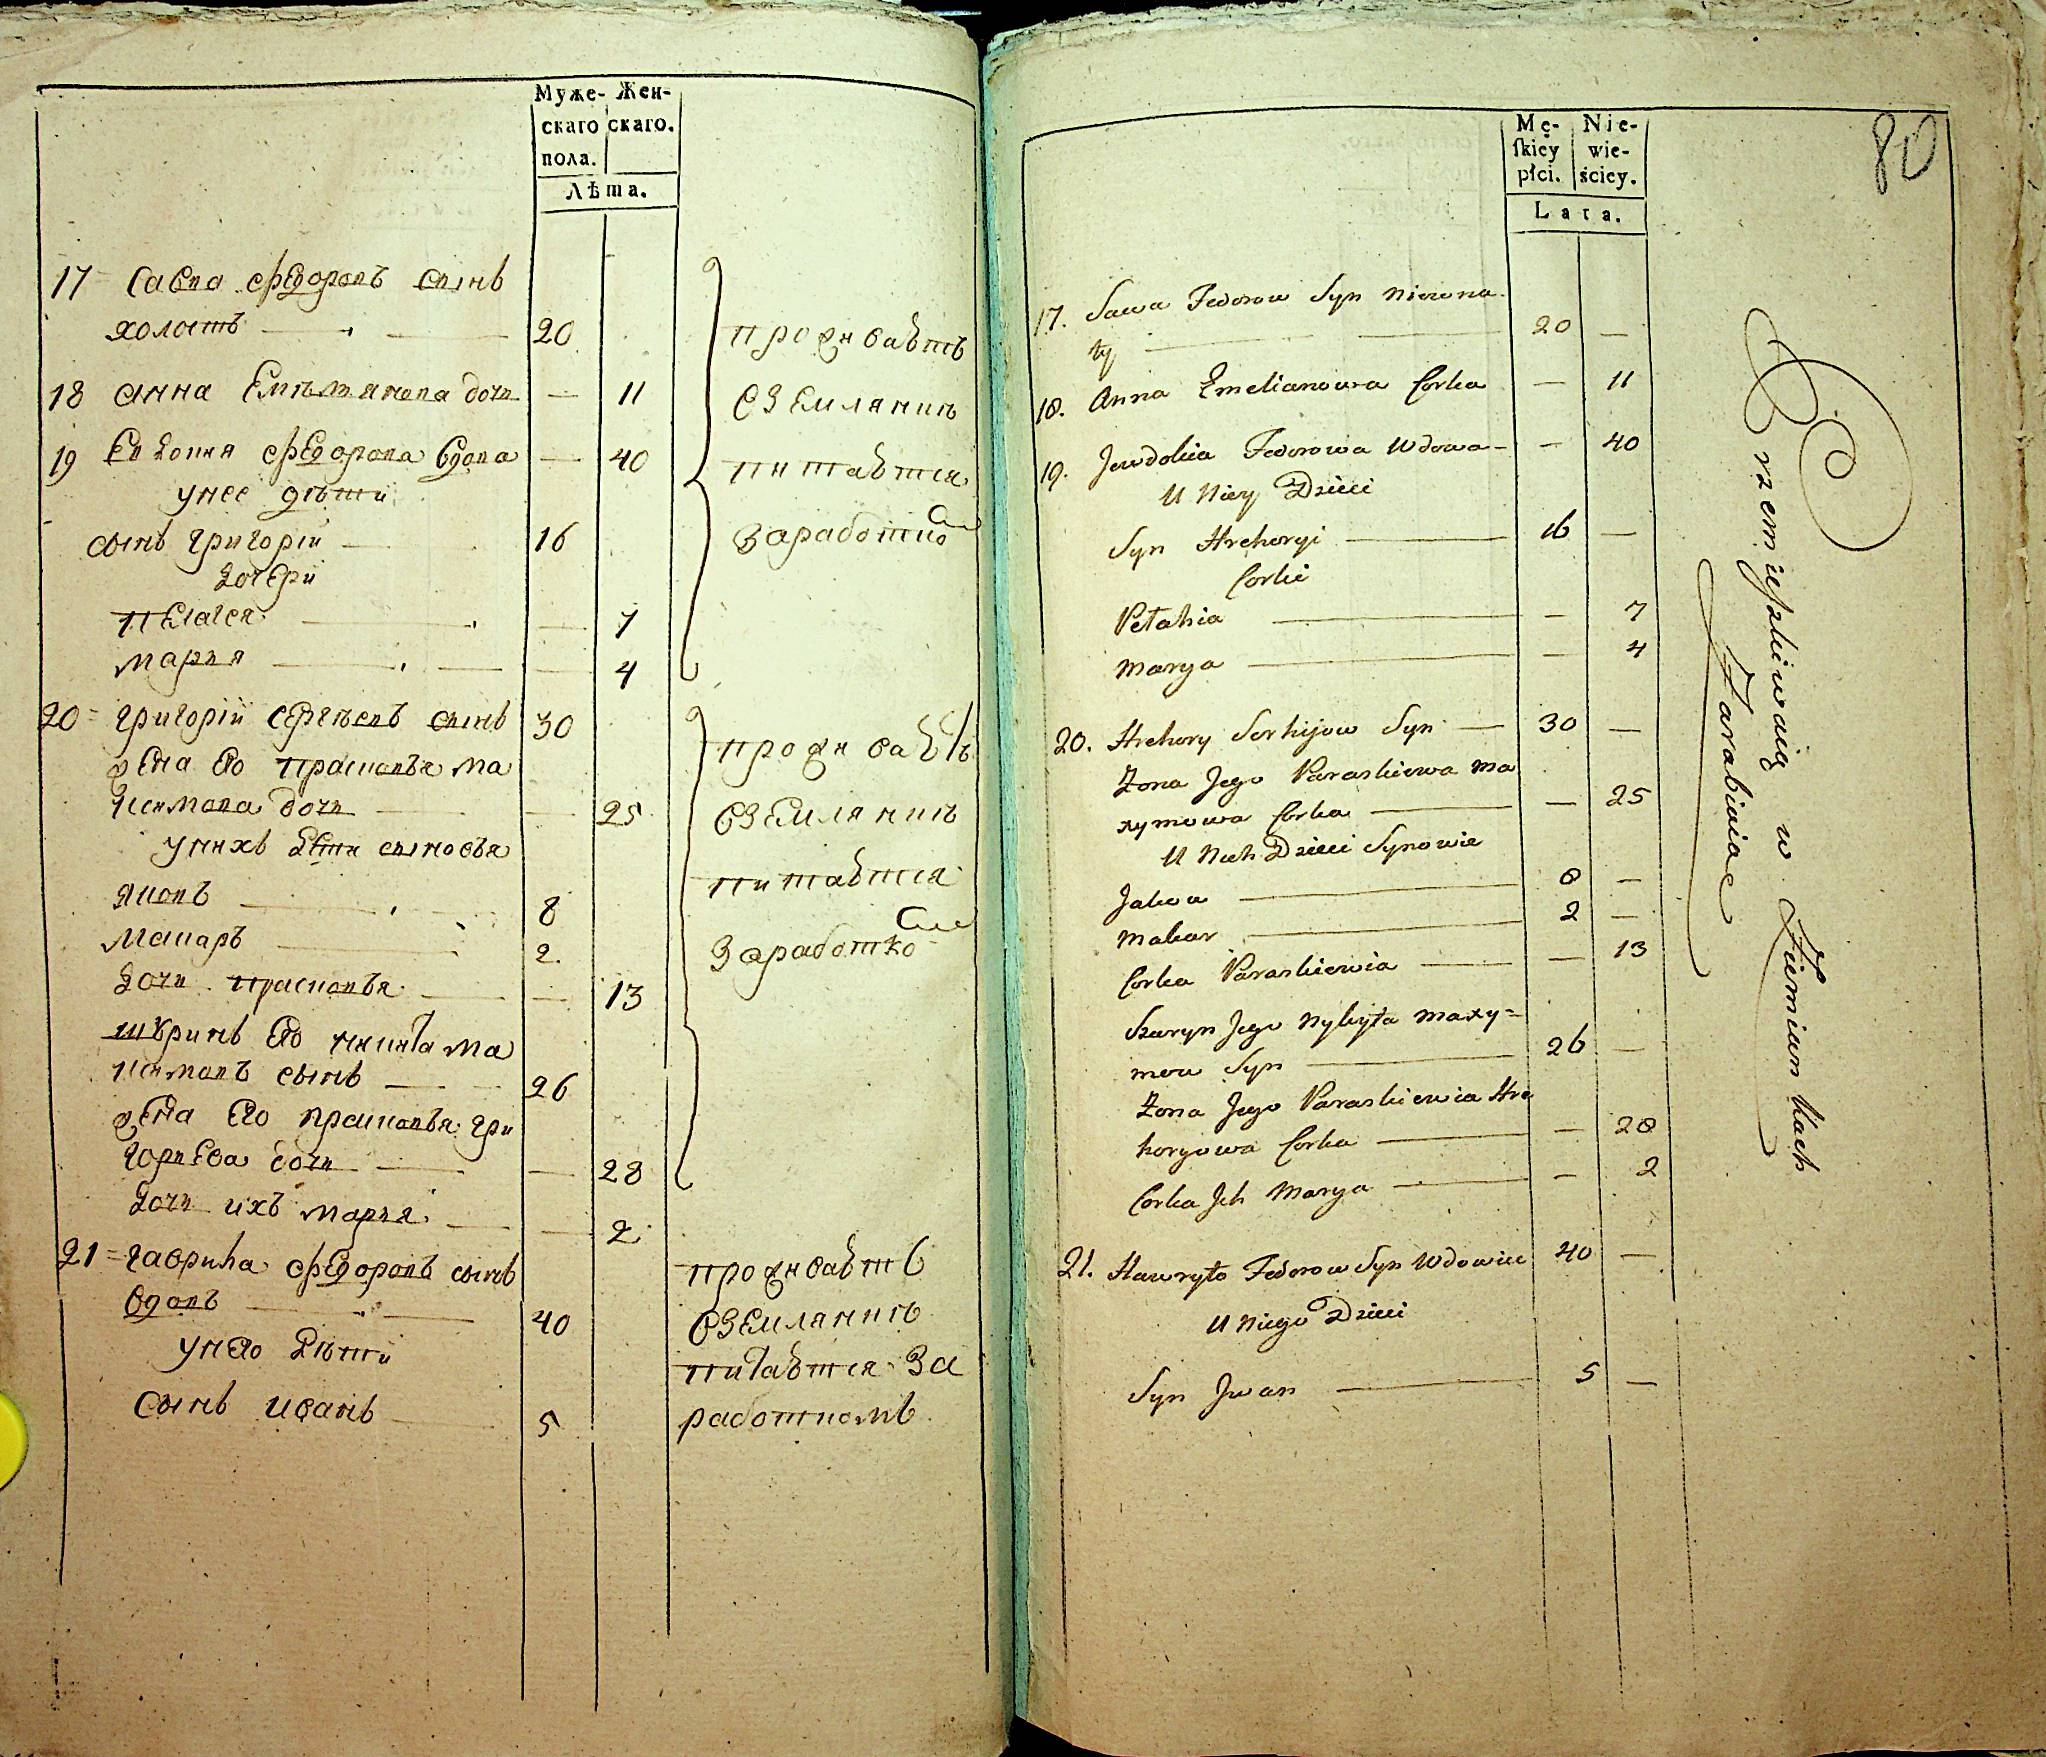 Муже- Жен-
скаго скаго.
пола.
Лѣта.
17 Савва Федоровъ сынъ
холостъ 20
18 Анна Емельянова дочь — 11
19 Евдокия Федорова вдова — 40
у нее дѣти
сынъ Григорій 16
дочери
Пелагея — 7
Марья — 4
проживаетъ
въ землянкѣ
питается
заработкомъ
20 Григорій Сергѣевъ сынъ 30
жена его Прасковья Ма
ксимова дочь — 25
у нихъ дети сыновья
Яковъ 8
Макаръ 2.
дочь Прасковья — 13
шуринъ его Никита Ма
ксимовъ сынъ 26
жена его Прасковья Гри
горьева дочь — 28
дочь ихъ Марья — 2
проживаетъ
въ землянкѣ
питается
заработкомъ
21 Гаврила Федоровъ сынъ
вдовъ 40
у него дѣти
сынъ Иванъ 5
проживаетъ
въ землянкѣ
питается за
работкомъ
80
Mę- Nie-
skiey wie-
płci. ściey.
Lata.
17. Sawa Fedorow Syn Niezona
ty 20 —
18. Anna Emelianowa Corka — 11
19. Jewdokia Fedorowa Wdowa — 40
U Niey Dzieci
Syn Hrehoryi 16 —
Corki
Pełahia — 7
Marya — 4
20. Hrehory Serhijow Syn 30 —
Żona Jego Paraskiewa Ma
xymowa Corka — 25
U Nich Dzieci Synowie
Jakow 8 —
Makar 2 —
Corka Paraskiewia — 13
Szuryn Jego Nykyta Maxy=
mow Syn 26 —
Żona Jego Paraskiewia Hre
horyowa Corka — 28
Corka Ich Marya — 2
21. Hawryło Fedorow Syn Wdowiec 40 —
U Niego Dzieci
Syn Jwan 5 —
w Ziemiankach
Zarabiaiąc